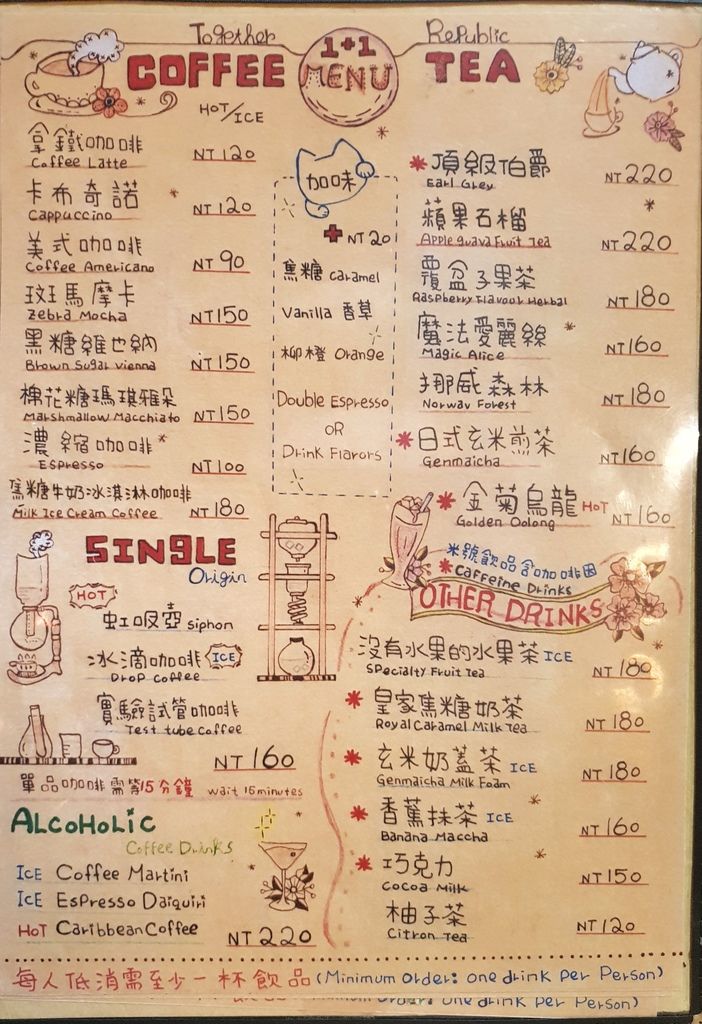 Together 1+1 Republic
COFFEE MENU TEA
HOT/ICE
拿鐵咖啡
Coffee Latte NT 120
卡布奇諾
Cappuccino NT 120
美式咖啡
Coffee Americano NT 90
斑馬摩卡
Zebra Mocha NT 150
黑糖維也納
Brown Sugar Vienna NT 150
棉花糖瑪琪雅朵
Marshmallow Macchiato NT 150
濃縮咖啡
Espresso NT 100
焦糖牛奶冰淇淋咖啡
Milk Ice Cream Coffee NT 180
加味
+ NT 20
焦糖 Caramel
Vanilla 香草
柳橙 Orange
Double Espresso
OR
Drink Flavors
*頂級伯爵
Earl Grey NT 220
蘋果石榴
Apple guava Fruit Tea NT 220
覆盆子果茶
Raspberry Flavour Herbal NT 180
魔法愛麗絲
Magic Alice NT 160
挪威森林
Norway Forest NT 180
*日式玄米煎茶
Genmaicha NT 160
*金菊烏龍 HOT
Golden Oolong NT 160
米號飲品含咖啡因
*Caffeine Drinks
SINGLE
Origin
HOT
虹吸壺 Siphon
冰滴咖啡 ICE
Drop Coffee
實驗試管咖啡
Test tube Coffee
NT 160
單品咖啡需等15分鐘 wait 15 minutes
ALCOHOLIC
Coffee Drinks
ICE Coffee Martini
ICE Espresso Daiquiri
HOT Caribbean Coffee
NT 220
OTHER DRINKS
沒有水果的水果茶 ICE
Specialty Fruit Tea NT 180
*皇家焦糖奶茶
Royal Caramel Milk Tea NT 180
*玄米奶蓋茶 ICE
Genmaicha Milk Foam NT 180
*香蕉抹茶 ICE
Banana Maccha NT 160
*巧克力
Cocoa Milk NT 150
柚子茶
Citron Tea NT 120
每人低消需至少一杯飲品 (Minimum Order: one drink per Person)
Order: one drink per Person)